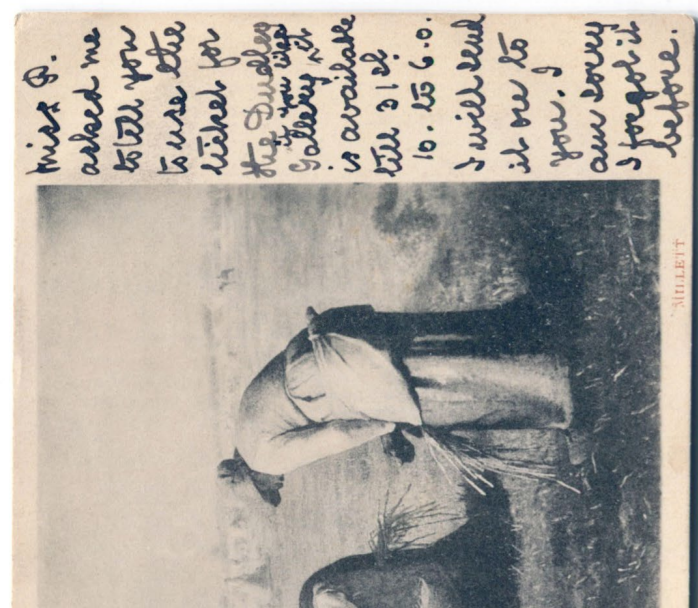 Miss P.
asked me
to tell you
to use the
ticket for
the Dudley
if you like
Gallery, it
is available
till 31st.
10. to 6.0.
I will send
it on to
you. I
am sorry
I forgot it
before.
MILLETT